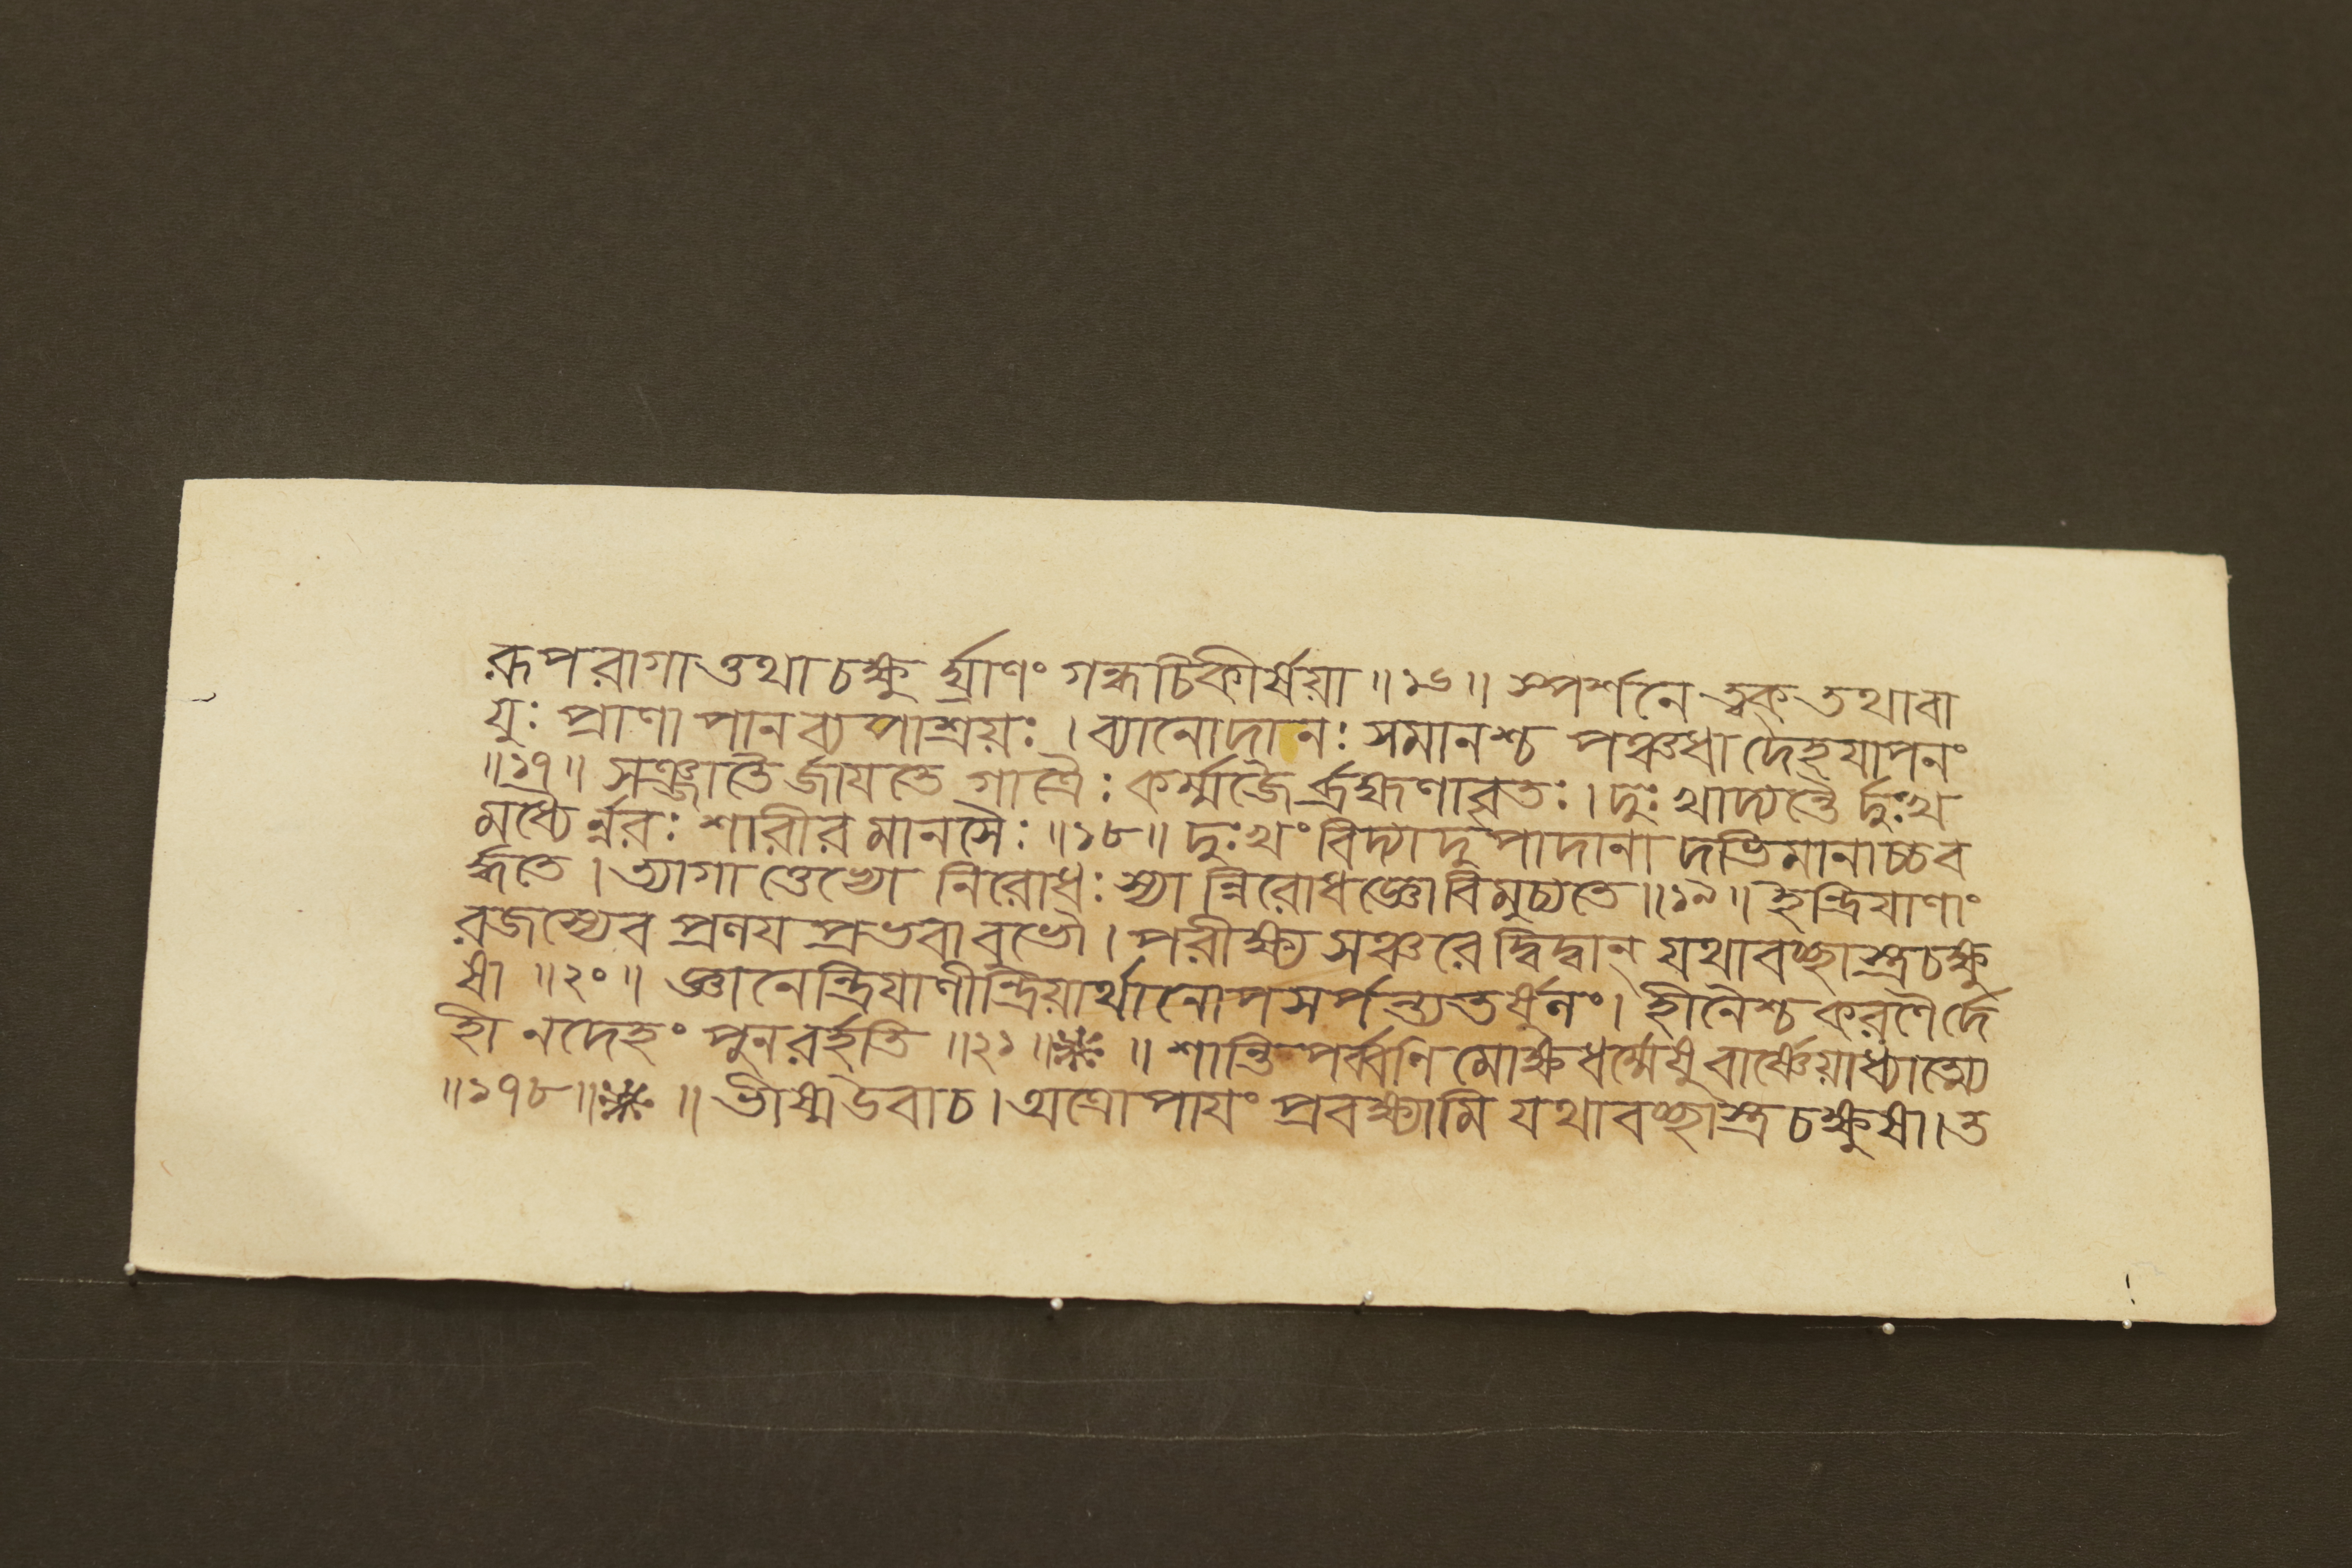 রূপরাগাত্তথা চক্ষুর্ঘ্রাণং গন্ধচিকীর্ষয়া ॥১৬॥ স্পর্শনে ত্বক্ তথা বা
যুঃ প্রাণাপানব্যপাশ্রয়ঃ । ব্যানোদানঃ সমানশ্চ পঞ্চধা দেহযাপনং
॥১৭॥ সঞ্জাতৈর্জায়তে গাত্রৈঃ কর্ম্মজৈর্ব্রহ্মণাবৃতঃ । দুঃখাদ্যন্তৈর্দুঃখ
মধ্যৈর্ন্নরঃ শারীরমানসৈঃ ॥১৮॥ দুঃখং বিদ্যাদুপাদানাদভিমানাচ্চব
র্দ্ধতে । ত্যাগাত্তেভ্যো নিরোধঃ স্যান্নিরোধজ্ঞো বিমুচ্যতে ॥১৯॥ ইন্দ্রিয়াণাং
রজস্যেব প্রণয়প্রভবাবুভৌ । পরীক্ষ্য সঞ্চরেদ্বিদ্বান্ যথাবচ্ছাস্ত্রচক্ষু
ষা ॥২০॥ জ্ঞানেন্দ্রিয়াণীন্দ্রিয়ার্থানোপসর্পন্ত্যতর্ষুনং । হীনৈশ্চ করণৈর্দে
হী ন দেহং পুনরর্হতি ॥২১॥ ॥ শান্তিপর্ব্বণি মোক্ষধর্ম্মেষু বার্ষ্ণেয়াধ্যাত্ম্যে
॥১৭৮॥ ॥ ভীষ্ম উবাচ । অত্রোপায়ং প্রবক্ষ্যামি যথাবচ্ছাস্ত্রচক্ষুষা । ত